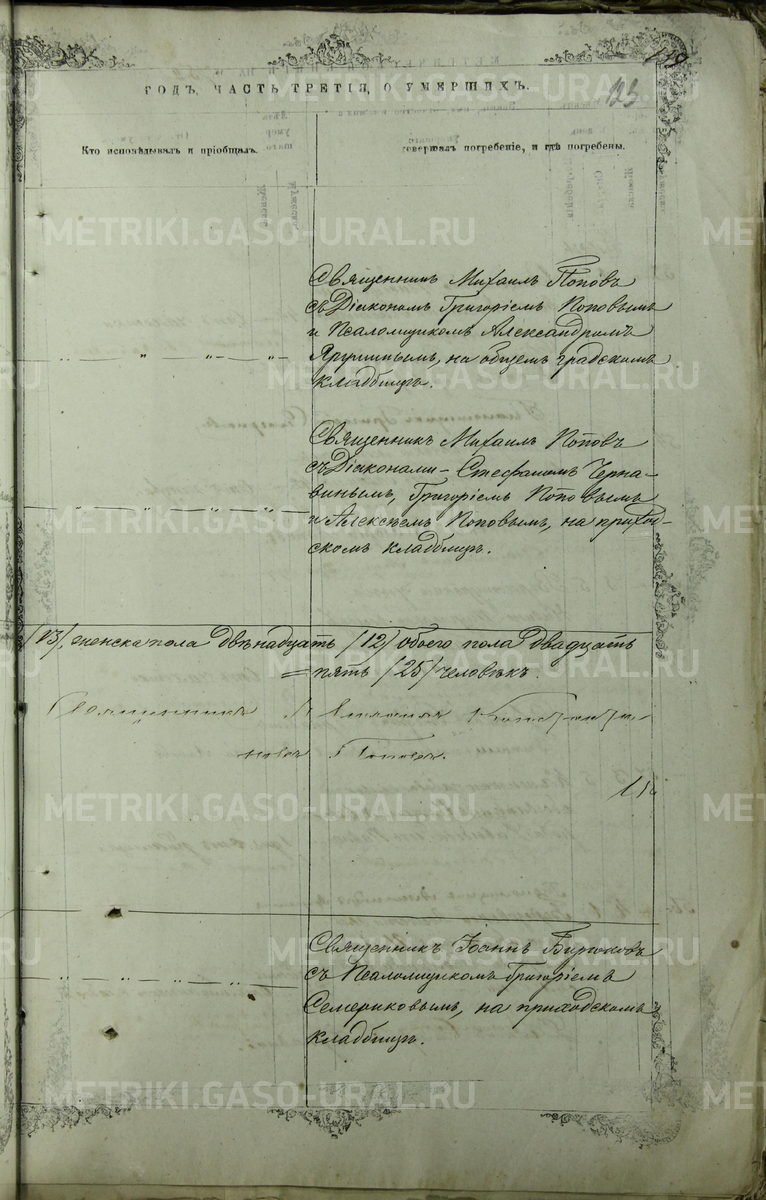 123
ГОДЪ, ЧАСТЬ ТРЕТІЯ, О УМЕРШИХЪ.
Кто исповѣдывалъ и пріобщалъ.
совершалъ погребеніе, и гдѣ погребены.
Священникъ Михаилъ Поповъ
съ Діакономъ Григоріемъ Поповымъ
и Псаломщикомъ Александромъ
на общемъ градскомъ
кладбищѣ.
Священникъ Михаилъ Поповъ
съ Діаконами - Стефаномъ Черна-
виньмъ, Григоріемъ Поповымъ
и Алексѣемъ Поповымъ, на приход-
скомъ кладбищѣ.
/13/, женска пола двѣнадцать /12/ обоего пола двадцать
= пять /25/ человѣкъ.
Священникъ
новъ Поповъ.
Священникъ Іоаннъ
съ Псаломщикомъ Григоріемъ
Семериковымъ, на приходскомъ
кладбищѣ.
METRIKI.GASO-URAL.RU
METRIKI.GASO-URAL.RU
METRIKI.GASO-URAL.RU
METRIKI.GASO-URAL.RU
METRIKI.GASO-URAL.RU
METRIKI.GASO-URAL.RU
METRIKI.GASO-URAL.RU